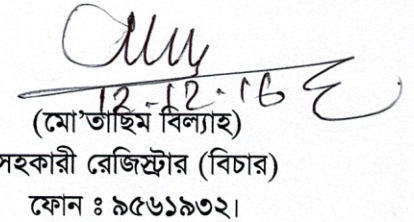 12-12-16
(মো'তাছিম বিল্যাহ)
সহকারী রেজিস্ট্রার (বিচার)
ফোন ঃ ৯৫৬১৯৩২।